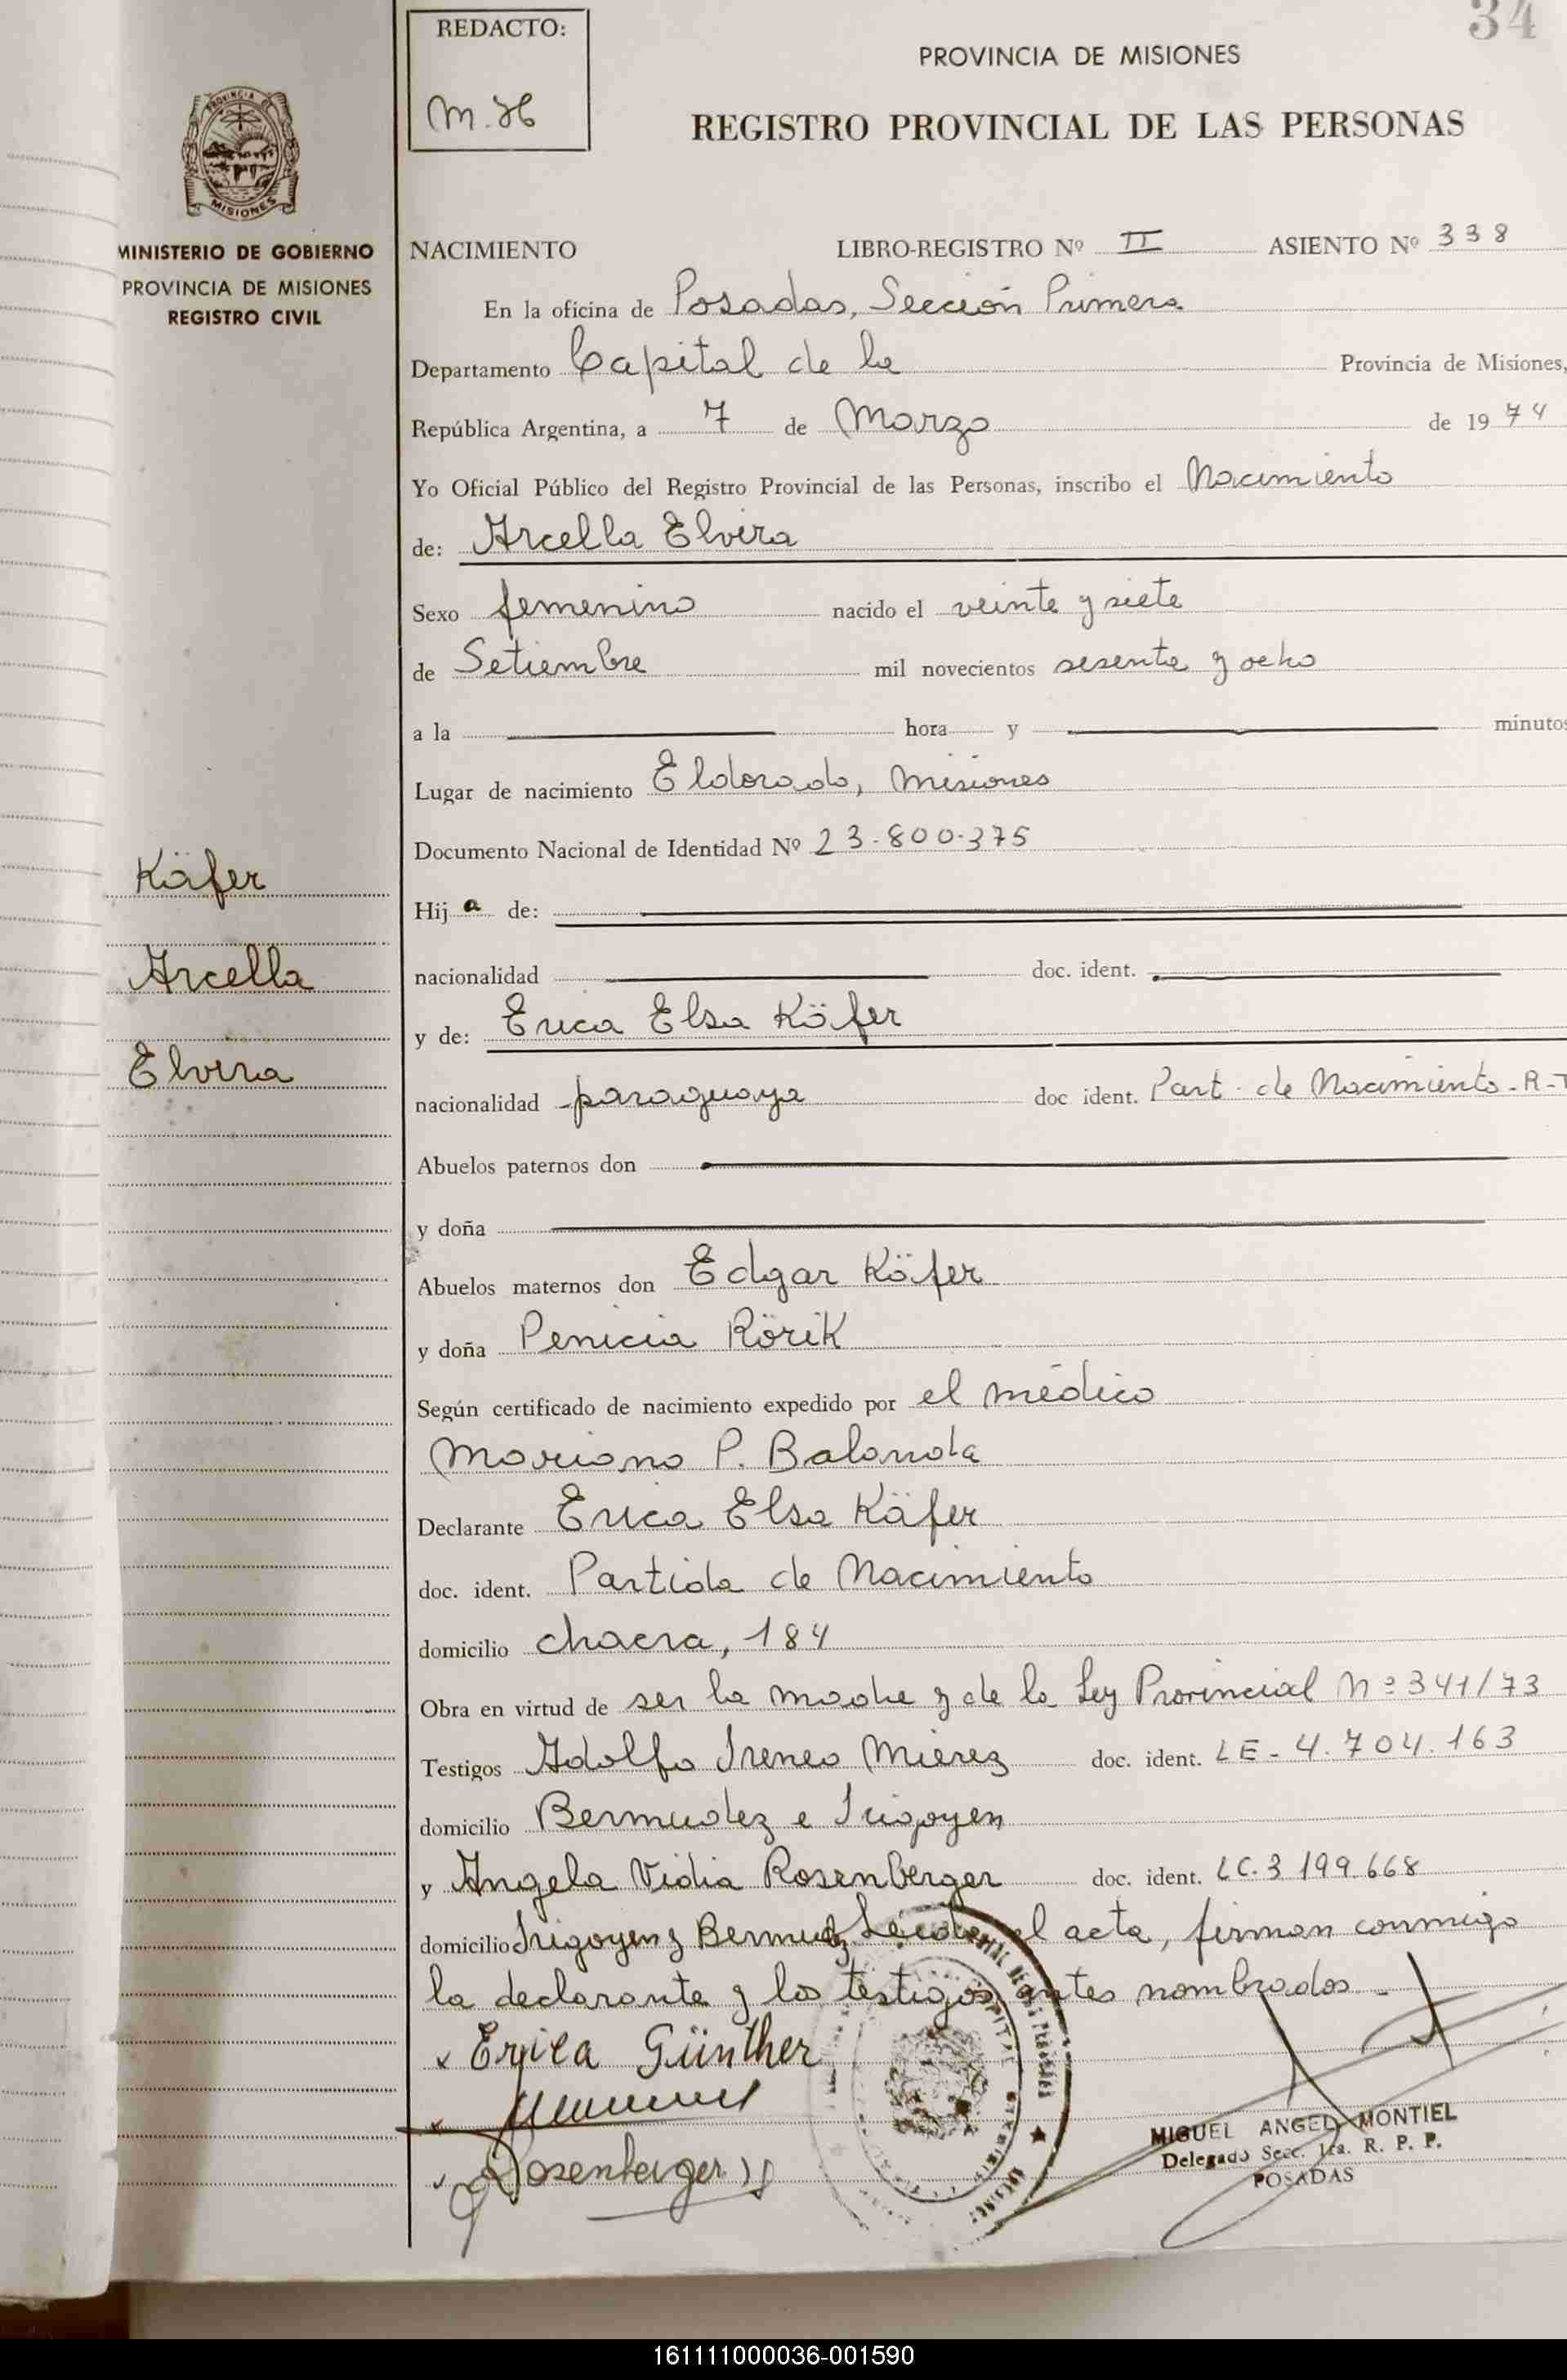 34
REDACTO:
M.H
PROVINCIA DE MISIONES
REGISTRO PROVINCIAL DE LAS PERSONAS
PROVINCIA DE
MISIONES
MINISTERIO DE GOBIERNO
PROVINCIA DE MISIONES
REGISTRO CIVIL
NACIMIENTO LIBRO-REGISTRO Nº II ASIENTO Nº 338
En la oficina de Posadas, Sección Primera
Departamento Capital de la Provincia de Misiones,
República Argentina, a 7 de Marzo de 1974
Yo Oficial Público del Registro Provincial de las Personas, inscribo el Nacimiento
de: Arcella Elvira
Sexo femenino nacido el veinte y siete
de Setiembre mil novecientos sesenta y ocho
a la hora y minutos
Lugar de nacimiento Eldorado, Misiones
Documento Nacional de Identidad Nº 23.800.375
Käfer
Hija de:
Arcella
nacionalidad doc. ident.
y de: Erica Elsa Käfer
Elvira
nacionalidad paraguaya doc ident. Part. de Nacimiento-R-T
Abuelos paternos don
y doña
Abuelos maternos don Edgar Käfer
y doña Penicia Rörik
Según certificado de nacimiento expedido por el médico
Mariano P. Balanda
Declarante Erica Elsa Käfer
doc. ident. Partida de Nacimiento
domicilio chacra, 184
Obra en virtud de ser la madre y de la Ley Provincial Nº 341/73
Testigos Adolfo Ireneo Mierez doc. ident. LE-4.704.163
domicilio Bermudez e Irigoyen
y Angela Vidia Rosenberger doc. ident. LC.3 199.668
domicilio Irigoyen y Bermudz Leída el acta, firman conmigo
la declarante y los testigos antes nombrados.-
x Erica Günther
Rosenberger
MIGUEL ANGEL MONTIEL
Delegado Secc. 1ra. R. P. P.
POSADAS
161111000036-001590